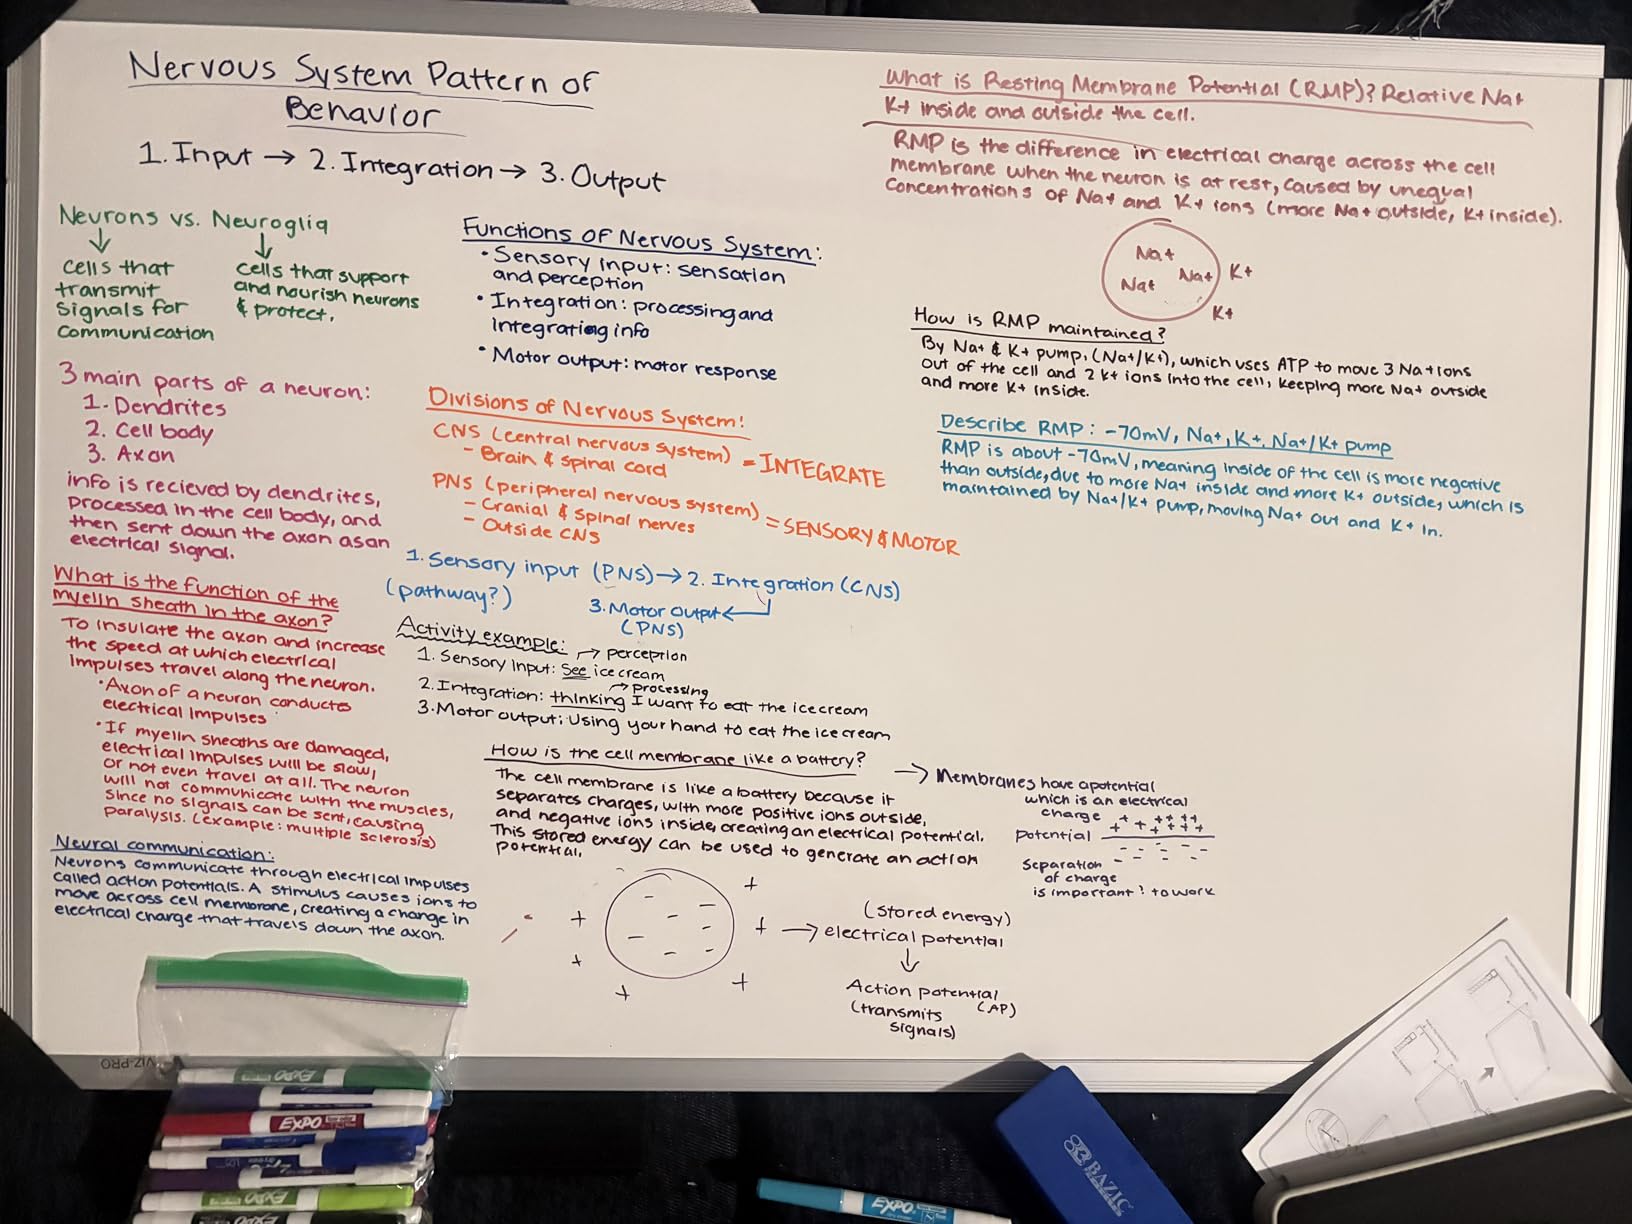 Nervous System Pattern of
Behavior
1. Input → 2. Integration → 3. Output
Neurons vs. Neuroglia
cells that
transmit
signals for
communication
cells that support
and nourish neurons
& protect.
3 main parts of a neuron:
1. Dendrites
2. Cell body
3. Axon
info is recieved by dendrites,
processed in the cell body, and
then sent down the axon as an
electrical signal.
What is the function of the
myelin sheath in the axon?
To insulate the axon and increase
the speed at which electrical
impulses travel along the neuron.
• Axon of a neuron conducts
electrical impulses
• If myelin sheaths are damaged,
electrical impulses will be slow,
or not even travel at all. The neuron
will not communicate with the muscles,
since no signals can be sent, causing
paralysis. (example: multiple sclerosis)
Neural communication:
Neurons communicate through electrical impulses
called action potentials. A stimulus causes ions to
move across cell membrane, creating a change in
electrical charge that travels down the axon.
Functions of Nervous System:
• Sensory input: sensation
and perception
• Integration: processing and
integrating info
• Motor output: motor response
Divisions of Nervous System!
CNS (central nervous system) = INTEGRATE
- Brain & spinal cord
PNS (peripheral nervous system) = SENSORY & MOTOR
- Cranial & spinal nerves
- Outside CNS
1. Sensory input (PNS) → 2. Integration (CNS)
(pathway?)
3. Motor output ←
(PNS)
Activity example:
→ perception
1. Sensory Input: See ice cream
→ processing
2. Integration: thinking I want to eat the ice cream
3. Motor output: Using your hand to eat the ice cream
How is the cell membrane like a battery?
The cell membrane is like a battery because it
separates charges, with more positive ions outside,
and negative ions inside, creating an electrical potential.
This stored energy can be used to generate an action
potential.
→ Membranes have a potential
which is an electrical
charge + + ++++
potential + ++++
- - - - -
separation - - - -
of charge
is important? to work
+ - + - - + → - - + - - + +
(stored energy)
electrical potential
↓
Action potential
(AP)
(transmits
signals)
What is Resting Membrane Potential (RMP)? Relative Na+
K+ inside and outside the cell.
RMP is the difference in electrical charge across the cell
membrane when the neuron is at rest, caused by unequal
concentrations of Na+ and K+ ions (more Na+ outside, K+ inside).
Na+
Na+ K+
Na+
K+
How is RMP maintained?
By Na+ & K+ pump, (Na+/K+), which uses ATP to move 3 Na+ ions
out of the cell and 2 K+ ions into the cell, keeping more Na+ outside
and more K+ inside.
Describe RMP: -70mV, Na+, K+, Na+/K+ pump
RMP is about -70mV, meaning inside of the cell is more negative
than outside, due to more Na+ inside and more K+ outside, which is
maintained by Na+/K+ pump, moving Na+ out and K+ in.
VIZ-PRO
EXPO
EXPO
EXPO
EXPO
EXPO
BAZIC